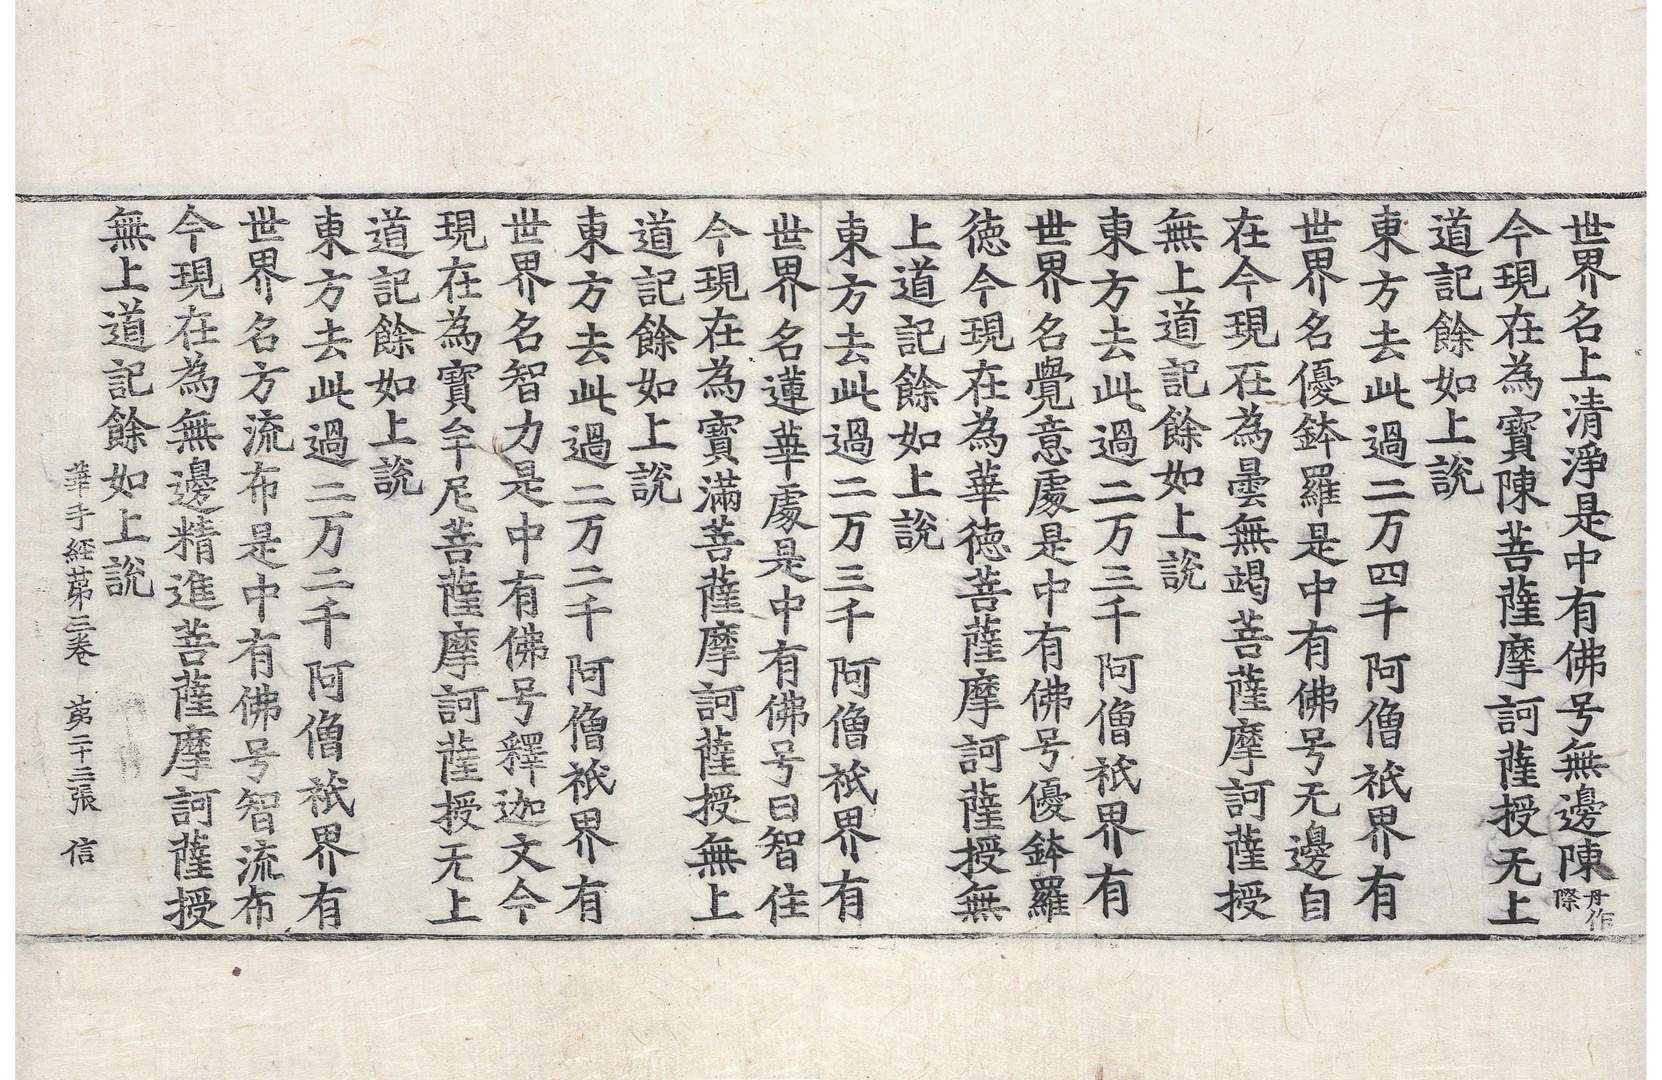 世界名上清淨是中有佛号無邊陳丹作際
今現在為寶陳菩薩摩訶薩授无上
道記餘如上說
東方去此過二万四千阿僧祇界有
世界名優鉢羅是中有佛号无邊自
在今現在為曇無竭菩薩摩訶薩授
無上道記餘如上說
東方去此過二万三千阿僧祇界有
世界名覺意處是中有佛号優鉢羅
徳今現在為華徳菩薩摩訶薩授無
上道記餘如上說
東方去此過二万三千阿僧祇界有
世界名蓮華處是中有佛号曰智住
今現在為寶滿菩薩摩訶薩授無上
道記餘如上說
東方去此過二万二千阿僧祇界有
世界名智力是中有佛号釋迦文今
現在為寶牟尼菩薩摩訶薩授无上
道記餘如上說
東方去此過二万二千阿僧祇界有
世界名方流布是中有佛号智流布
今現在為無邊精進菩薩摩訶薩授
無上道記餘如上說
華手經苐三卷 苐二十三張 信